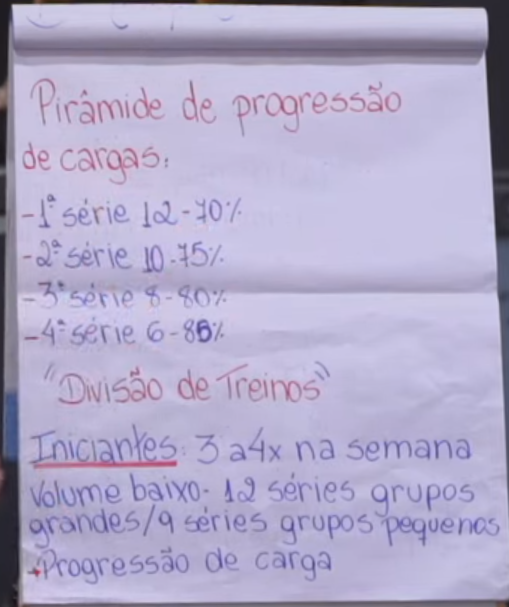 Pirâmide de progressão
de cargas:
-1ª série 12-70%
-2ª série 10-75%
-3ª série 8-80%
-4ª série 6-85%
"Divisão de Treinos"
Iniciantes: 3 a 4x na semana
Volume baixo- 12 séries grupos
grandes/9 séries grupos pequenos
+Progressão de carga